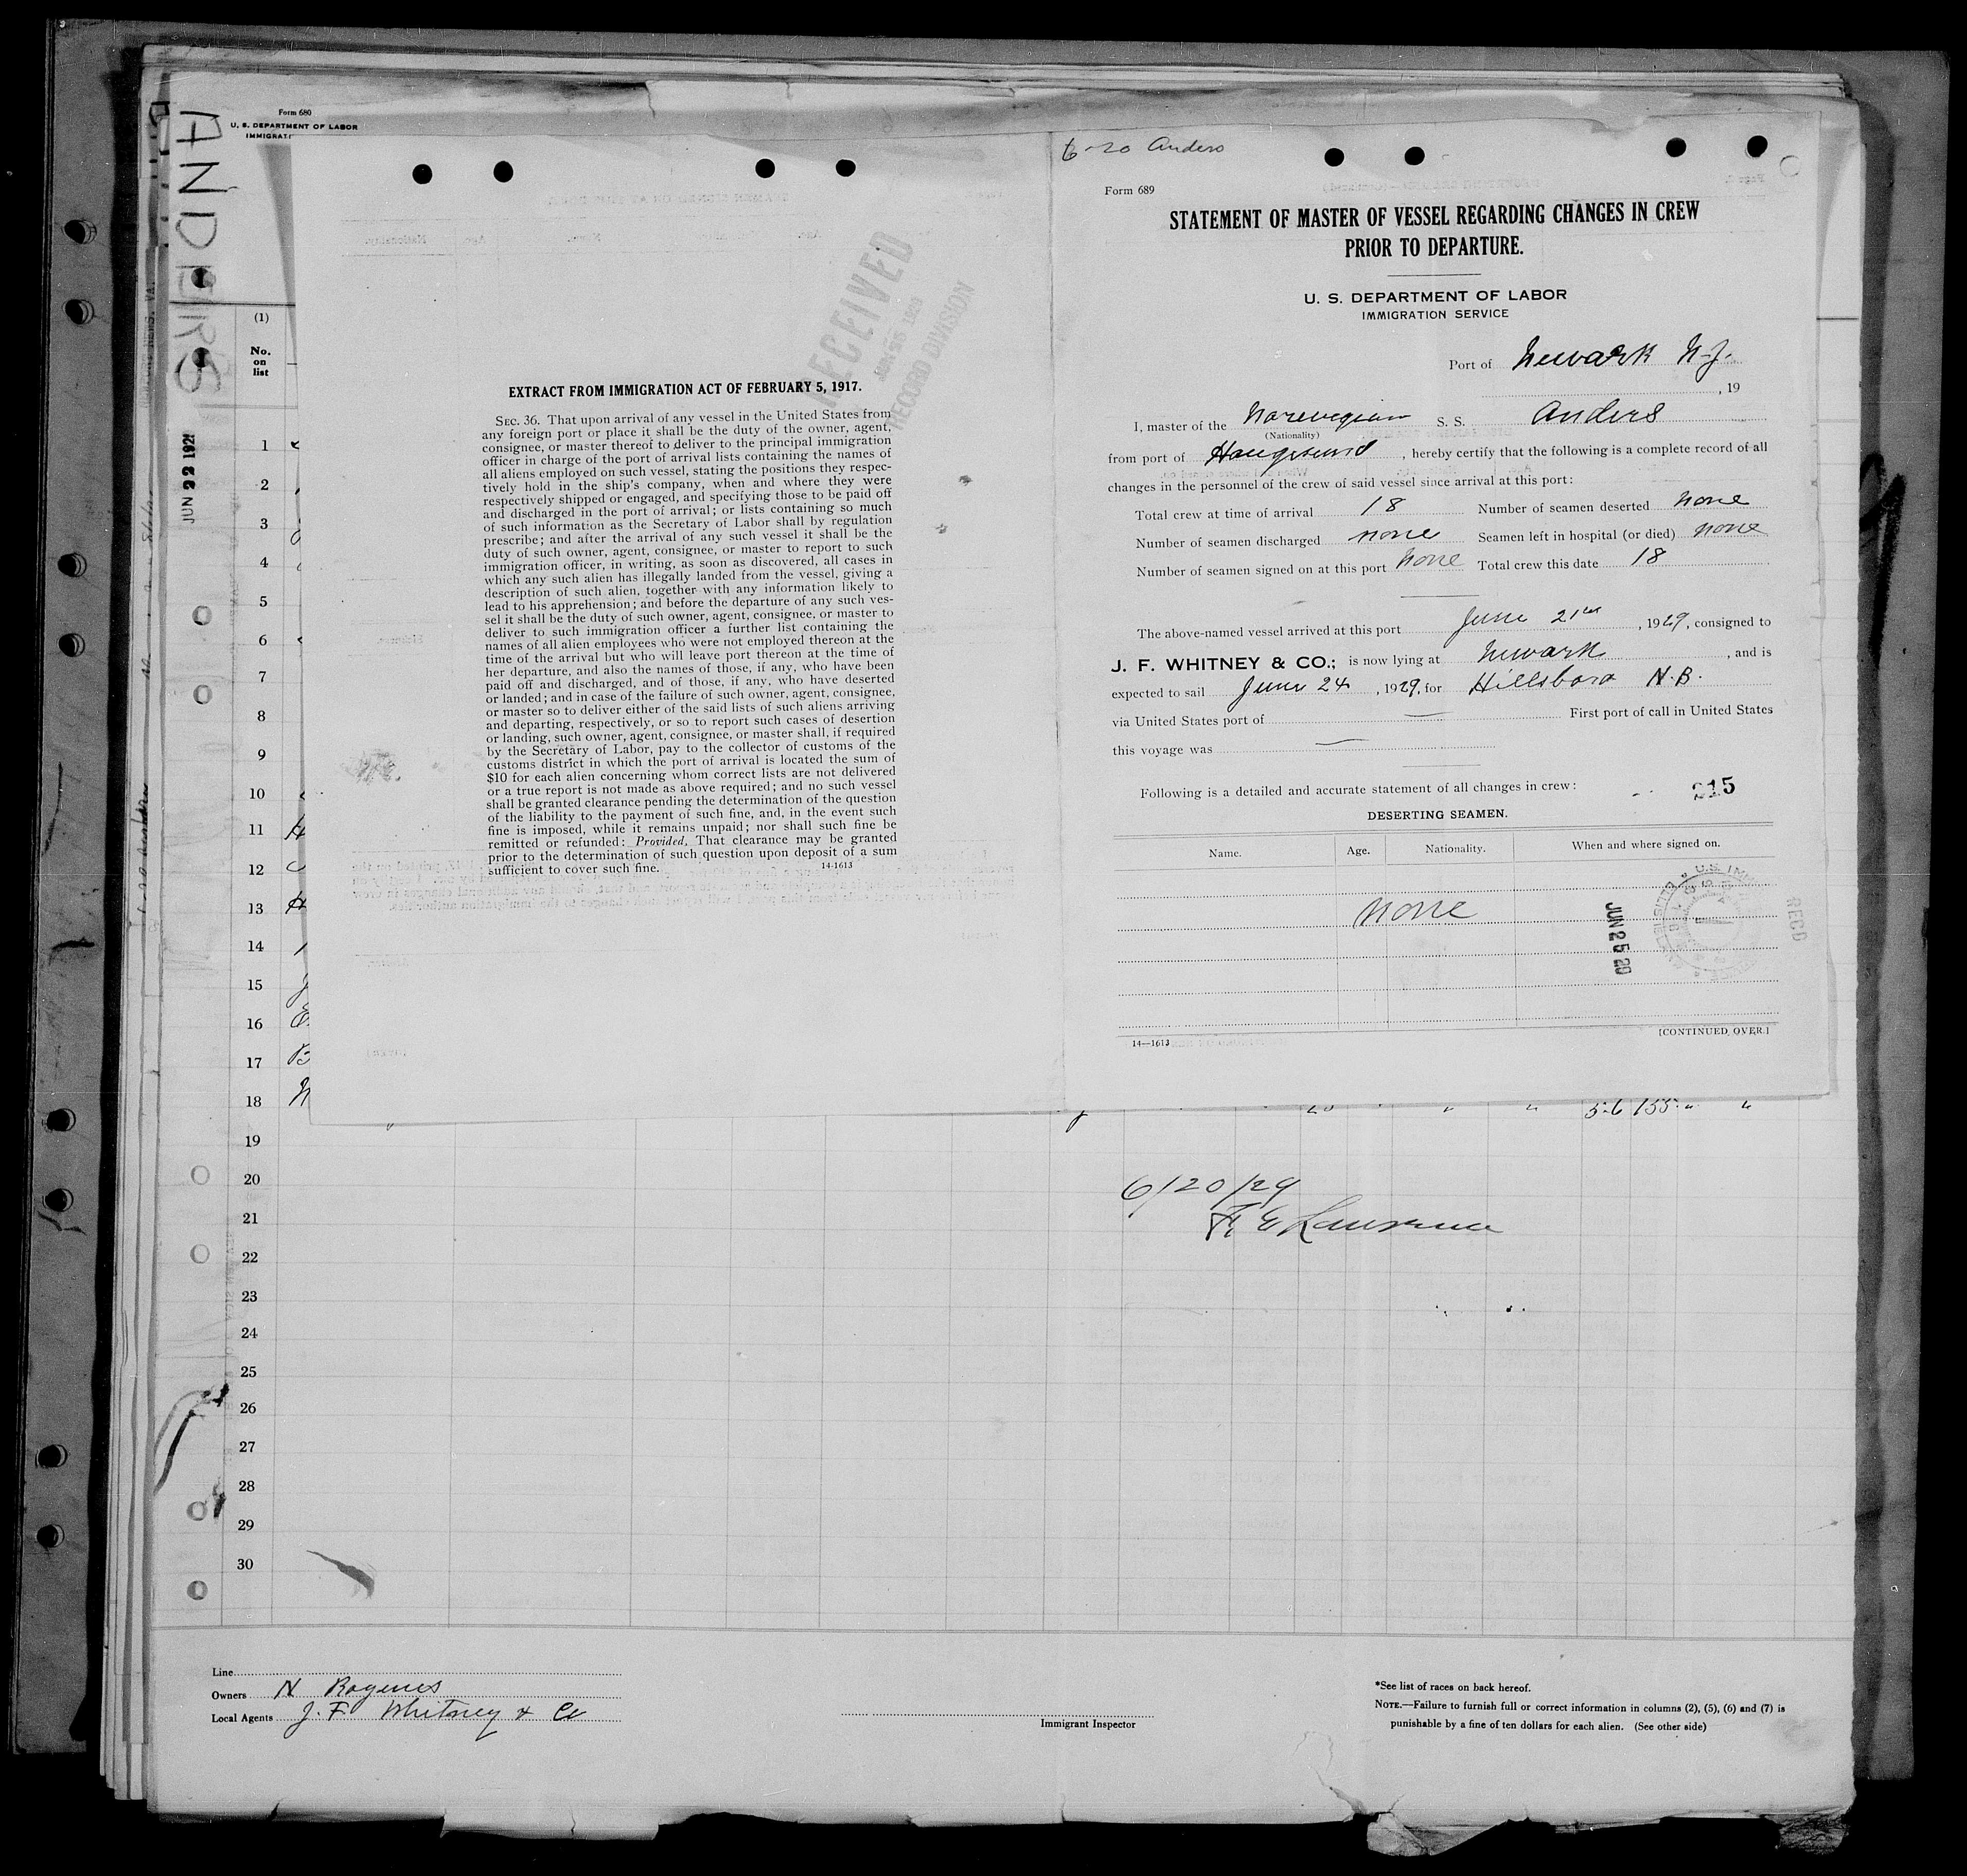 ANDERS
Form 680
U. S. DEPARTMENT OF LABOR
JUN 22 192
(1)
No.
on
list
1
2
3
4
5
6
7
8
9
10
11
12
13
14
15
16
17
18
19
20
21
22
23
24
25
26
27
28
29
30
RECEIVED
RECORD DIVISION
EXTRACT FROM IMMIGRATION ACT OF FEBRUARY 5, 1917.
SEC. 36. That upon arrival of any vessel in the United States from
any foreign port or place it shall be the duty of the owner, agent,
consignee, or master thereof to deliver to the principal immigration
officer in charge of the port of arrival lists containing the names of
all aliens employed on such vessel, stating the positions they respec-
tively hold in the ship's company, when and where they were
respectively shipped or engaged, and specifying those to be paid off
and discharged in the port of arrival; or lists containing so much
of such information as the Secretary of Labor shall by regulation
prescribe; and after the arrival of any such vessel it shall be the
duty of such owner, agent, consignee, or master to report to such
immigration officer, in writing, as soon as discovered, all cases in
which any such alien has illegally landed from the vessel, giving a
description of such alien, together with any information likely to
lead to his apprehension; and before the departure of any such ves-
sel it shall be the duty of such owner, agent, consignee, or master to
deliver to such immigration officer a further list containing the
names of all alien employees who were not employed thereon at the
time of the arrival but who will leave port thereon at the time of
her departure, and also the names of those, if any, who have been
paid off and discharged, and of those, if any, who have deserted
or landed; and in case of the failure of such owner, agent, consignee,
or master so to deliver either of the said lists of such aliens arriving
and departing, respectively, or so to report such cases of desertion
or landing, such owner, agent, consignee, or master shall, if required
by the Secretary of Labor, pay to the collector of customs of the
customs district in which the port of arrival is located the sum of
$10 for each alien concerning whom correct lists are not delivered
or a true report is not made as above required; and no such vessel
shall be granted clearance pending the determination of the question
of the liability to the payment of such fine, and, in the event such
fine is imposed, while it remains unpaid; nor shall such fine be
remitted or refunded: Provided, That clearance may be granted
prior to the determination of such question upon deposit of a sum
sufficient to cover such fine. 14-1613
6-20 Anders
Form 689
STATEMENT OF MASTER OF VESSEL REGARDING CHANGES IN CREW
PRIOR TO DEPARTURE.
U. S. DEPARTMENT OF LABOR
IMMIGRATION SERVICE
Port of Newark N.J.
, 19
I, master of the Norwegian S. S. Anders
(Nationality)
from port of Haugesund, hereby certify that the following is a complete record of all
changes in the personnel of the crew of said vessel since arrival at this port:
Total crew at time of arrival 18 Number of seamen deserted none
Number of seamen discharged none Seamen left in hospital (or died) none
Number of seamen signed on at this port none Total crew this date 18
The above-named vessel arrived at this port June 21st, 1929, consigned to
J. F. WHITNEY & CO.; is now lying at Newark, and is
expected to sail June 24, 1929, for Hillsboro N.B.
via United States port of — First port of call in United States
this voyage was —
Following is a detailed and accurate statement of all changes in crew: 215
DESERTING SEAMEN.
Name. Age. Nationality. When and where signed on.
none
JUN 25 29
RECD
14—1613
[CONTINUED OVER.]
5-6 155
6/20/29
F. E. Lawrence
Line
Owners N Rogenes
Local Agents J. F. Whitney & Co
Immigrant Inspector
*See list of races on back hereof.
NOTE.—Failure to furnish full or correct information in columns (2), (5), (6) and (7) is
punishable by a fine of ten dollars for each alien. (See other side)